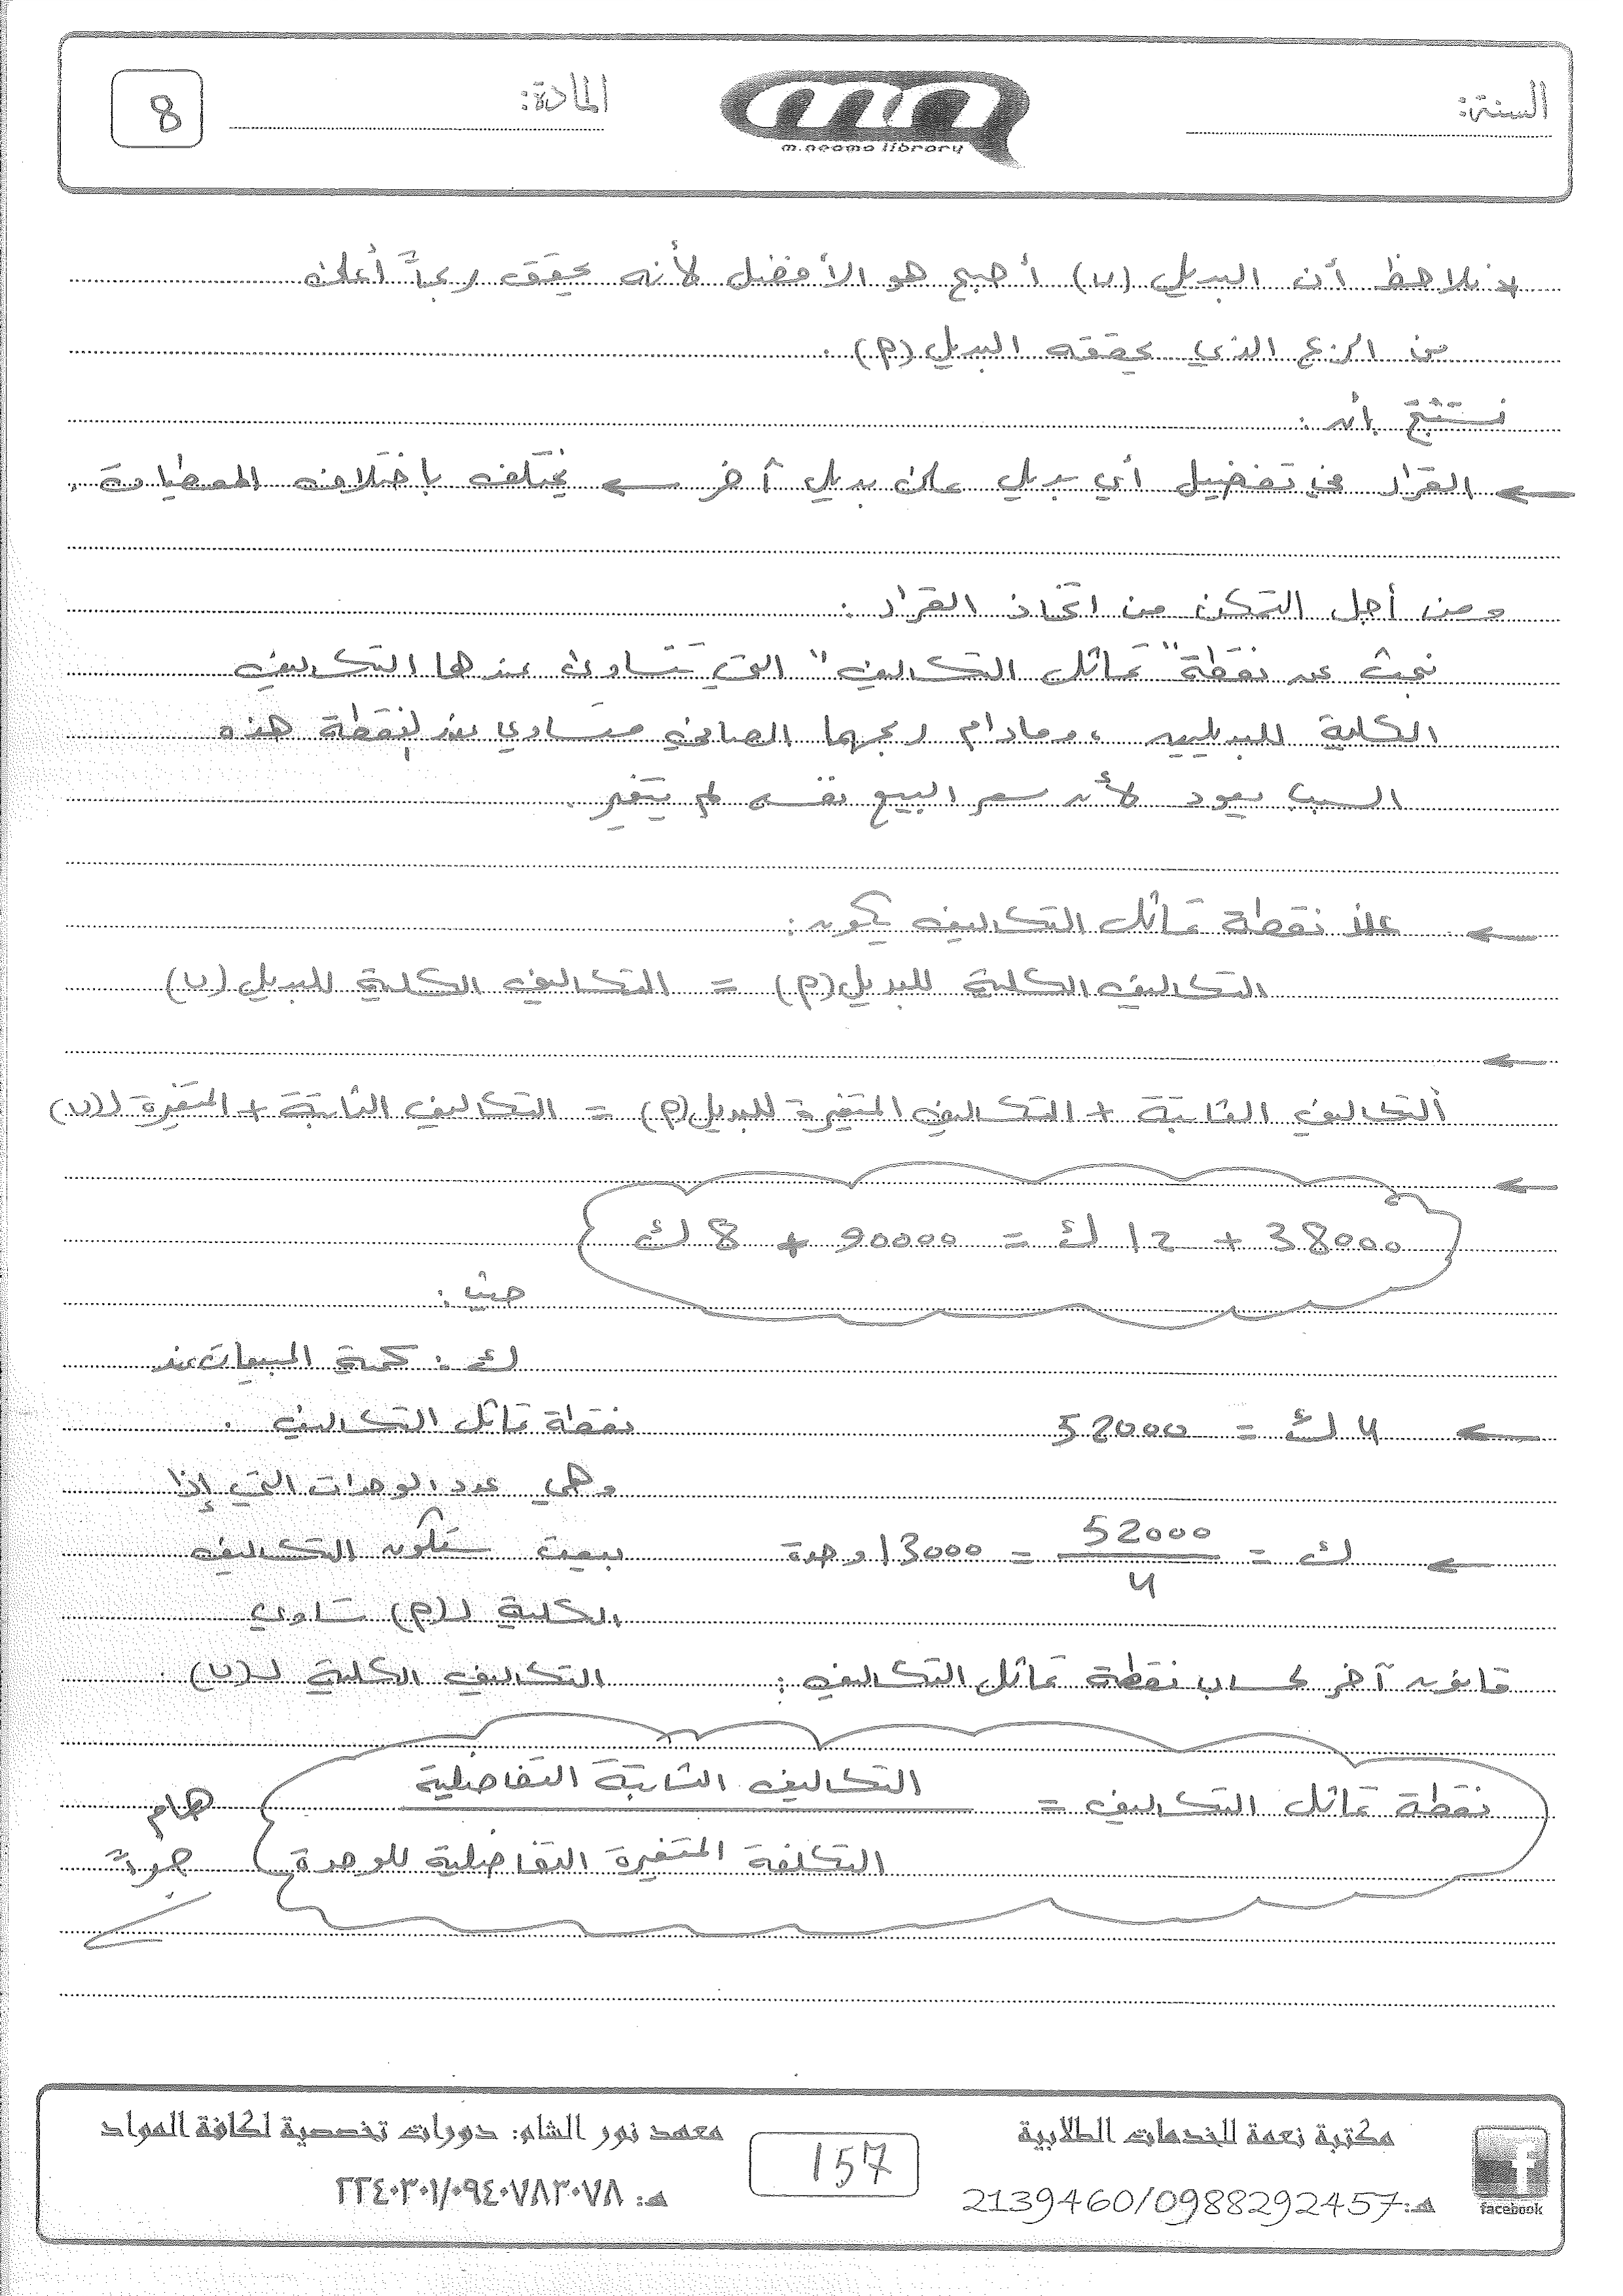 السنة:
m.neama library
المادة:
8
* نلاحظ أن البديل (ب) أصبح هو الأفضل لأنه يحقق ربحاً أعلى
من الربح الذي يحققه البديل (م).
نستنتج بأنه:
← القرار في تفضيل أي بديل على بديل آخر ← يختلف باختلاف المعطيات.
ومن أجل التمكن من اتخاذ القرار:
نبحث عن نقطة "تماثل التكاليف" التي تتساوى عندها التكاليف
الكلية للبديلين، ومادام ربحهما الصافي متساوي عند النقطة هذه
السبب يعود لأن سعر البيع نفسه لم يتغير.
← عند نقطة تماثل التكاليف يكون:
التكاليف الكلية للبديل (م) = التكاليف الكلية للبديل (ب)
←
التكاليف الثابتة + التكاليف المتغيرة للبديل (م) = التكاليف الثابتة + المتغيرة لـ (ب)
←
38000 + 12 ك = 90000 + 8 ك
حيث:
ك: كمية المبيعات عند
نقطة تماثل التكاليف.
← 4 ك = 52000
وهي عدد الوحدات التي إذا
← ك = 52000 / 4 = 13000 وحدة
بيعت ستكون التكاليف
الكلية لـ (م) تساوي
التكاليف الكلية لـ (ب).
قانون آخر لحساب نقطة تماثل التكاليف:
نقطة تماثل التكاليف = التكاليف الثابتة التفاضلية
التكلفة المتغيرة التفاضلية للوحدة
هام
جداً
facebook
مكتبة نعمة للخدمات الطلابية
هـ: 2139460/0988292457
157
معهد نور الشام: دورات تخصصية لكافة المواد
هـ: ٢٢٤٠٣٠١/٠٩٤٠٧٨٣٠٧٨